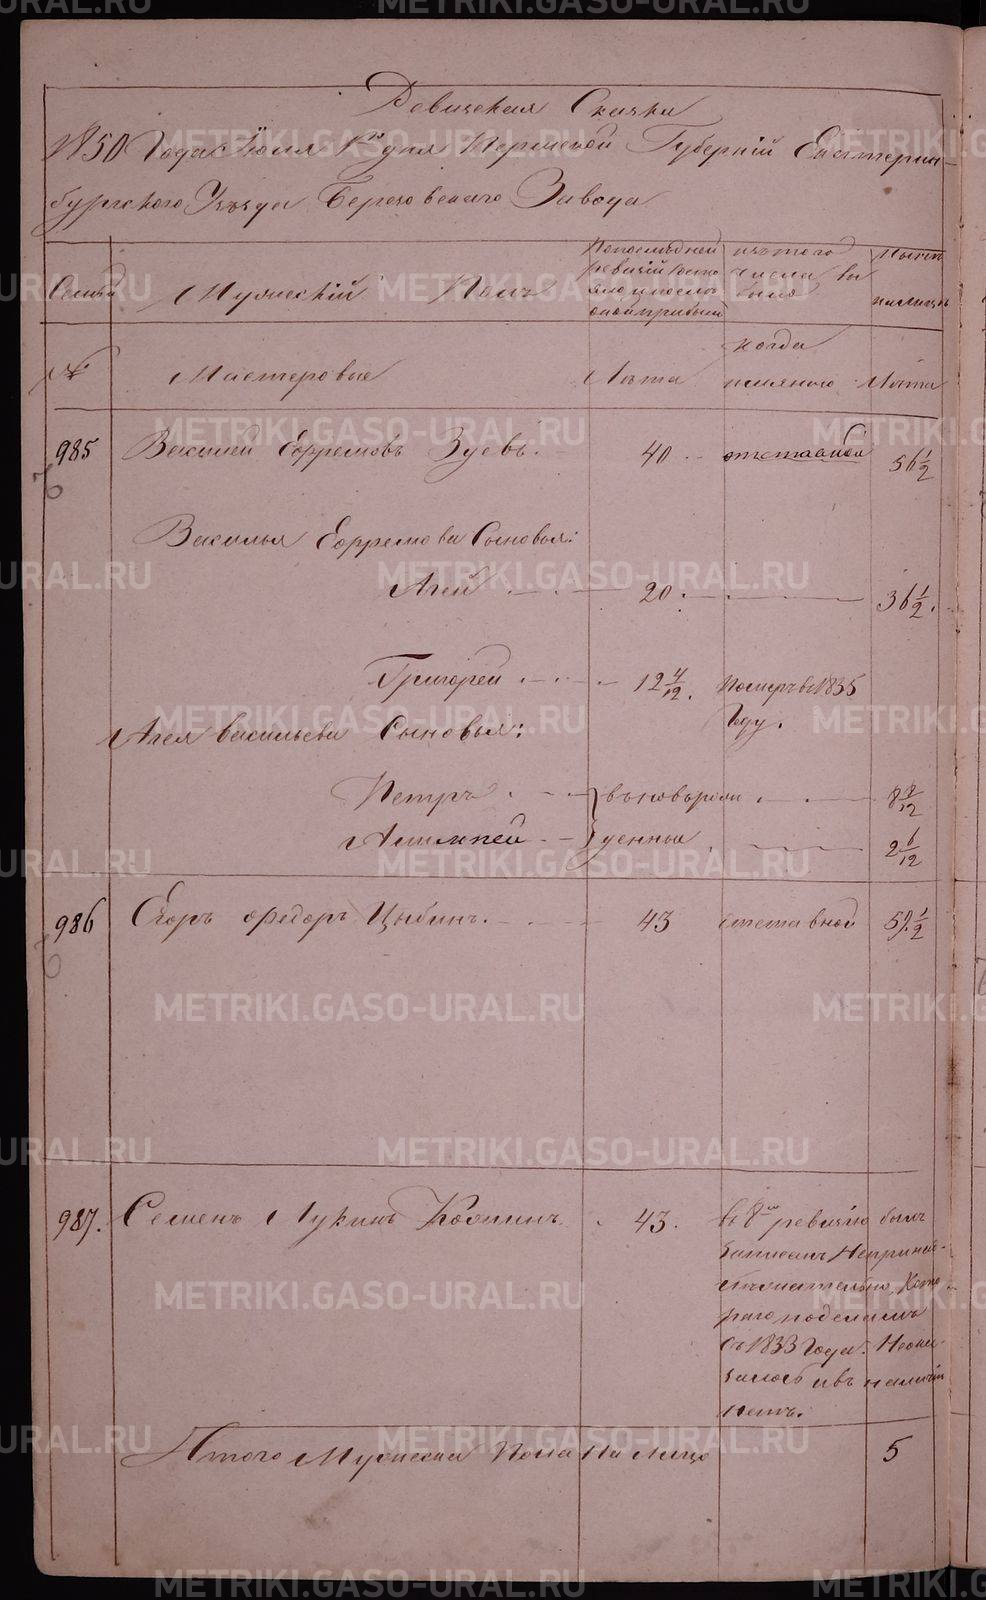 Ревизская Сказка
1850 Года Іюля 1го дня Пермской Губерніи Екатерин-
бургскаго Уѣзда Березовскаго Завода
Семьи
Мужескій Полъ
По последней
ревизіи состо
яло и послѣ
оной прибыли
изъ того
числа вы
было
Нынѣ
на лицо
№
Мастеровые
Лѣта
когда
имянно
Лѣта
985 Василей Ефремовъ Зуевъ. 40 отставной 56 1/2
Василья Ефремова Сыновья:
Агей 20 36 1/2.
Григорей 12 4/12. Померъ въ 1835
Году.
Агея Васильева Сыновья:
Петръ вновьрож 8 8/12
денные 2 6/12
986 Егоръ Федоръ Цыбинъ. 43 отставной 59 1/2
987. Семенъ Лукинъ 43. въ 8ю ревизію былъ
записанъ
раго
съ 1833 Года. Неока-
залось и въ наличіи
нетъ.
Итого Мужеска Пола На лицо 5
METRIKI.GASO-URAL.RU